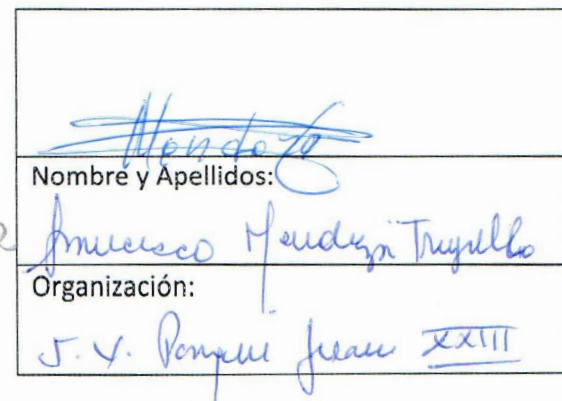 Mendoza
Nombre y Apellidos:
Francisco Mendoza Trujillo
Organización:
J. V. Parque Juan XXIII